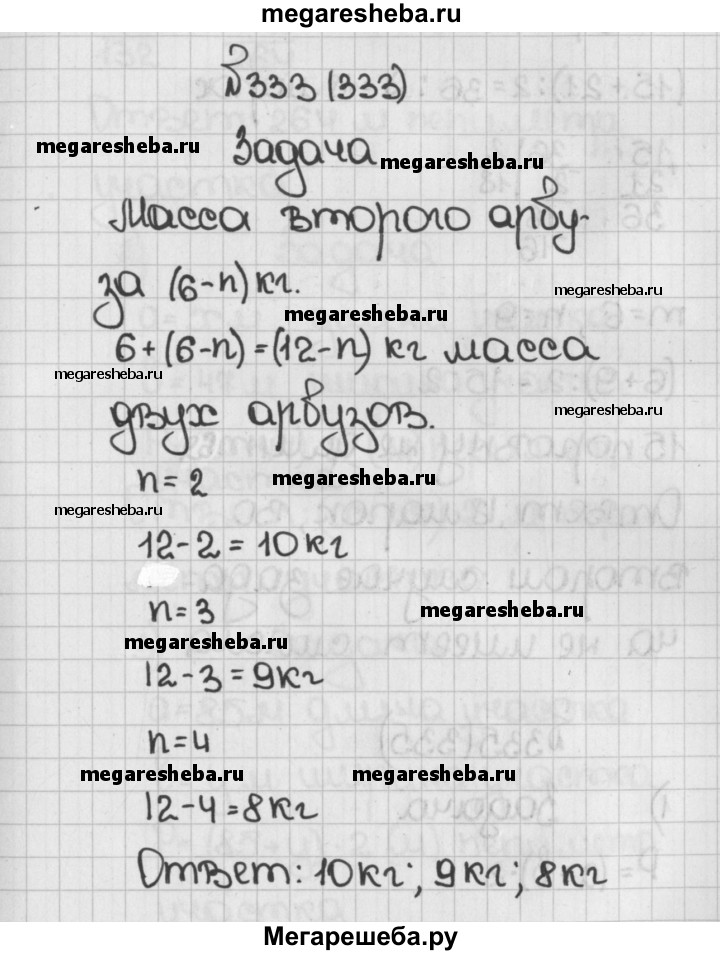 megaresheba.ru
№333 (333)
megaresheba.ru Задача megaresheba.ru
Масса второго арбу-
за (6-n) кг. megaresheba.ru
megaresheba.ru
6+(6-n)=(12-n) кг масса
megaresheba.ru
двух арбузов. megaresheba.ru
n=2 megaresheba.ru
megaresheba.ru
12-2=10кг
n=3 megaresheba.ru
megaresheba.ru
12-3=9кг
n=4
megaresheba.ru megaresheba.ru
12-4=8кг
Ответ: 10кг; 9кг; 8кг
Мегарешеба.ру